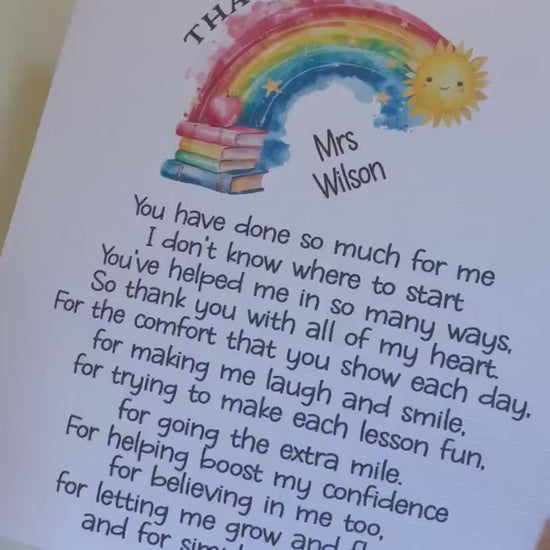 Mrs
Wilson
You have done so much for me
I don't know where to start
You've helped me in so many ways,
So thank you with all of my heart.
For the comfort that you show each day,
for making me laugh and smile,
for trying to make each lesson fun,
for going the extra mile.
For helping boost my confidence
for believing in me too,
for letting me grow and
and for